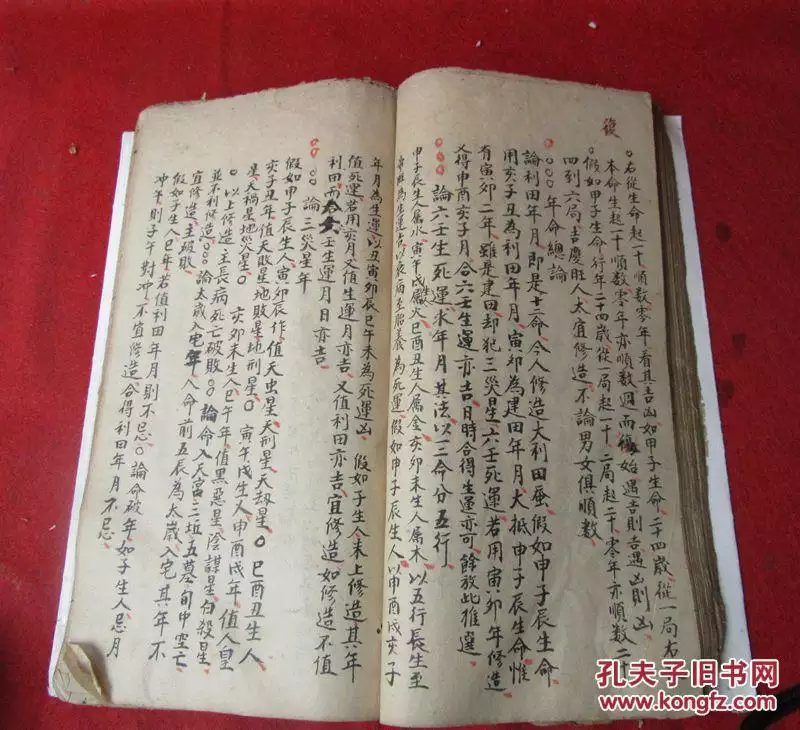 復
右從生命起一十順數零年看其吉凶如甲子生命二十四歲從一局右
本命生起一十順數零年亦順數週而復始遇吉則吉遇凶則凶
假如甲子生命行年二十四歲從一局起一十二局起二十零年亦順數二十
四到六局吉慶旺人太宜修造不論男女俱順數
年命總論
論利田年月即是十二命今人修造大利田蚕假如申子辰生命
用亥子丑為利田年月寅卯為建田年月大抵申子辰生命惟
有寅卯二年雖是建田却犯三災星六壬死運若用寅卯年修造
又得申酉亥子月合六壬生運亦吉日時合得生運亦可餘放此推選
論六壬生死運求年月其法以三命分五行
申子辰生人属水寅午戌生属火巳酉丑生人属金亥卯未生人属木以五行長生至
帝旺為生運吉以衰病至胎養為死運假如申子辰生人以申酉戌亥子
年月為生運以丑寅卯辰巳午未為死運凶假如子生人未上修造其年
值死運若用亥月又值生運月亦吉又值利田亦吉宜修造如修造不值
利田而六壬生運月日亦吉
論三災星年
假如申子辰生人寅卯辰作值天虫星天刑星天刼星巳酉丑生人
亥子丑年值天敗星地敗星地刑星寅午戌生人申酉戌年值人皇
星天禍星地災星亥卯未生人巳午年值黑惡星陰謀星白殺星
以上修造主長病死亡破敗論命入天宮三坵五墓旬中空亡
並不利修造論太歲入宅年人命前五辰為太歲入宅其年不
宜修造主破敗
假如子生人巳年若值利田年月則不忌論命破年如子生人忌月
冲午則子午對冲不宜修造合得利田年月不忌
孔夫子旧书网
kongfz.com